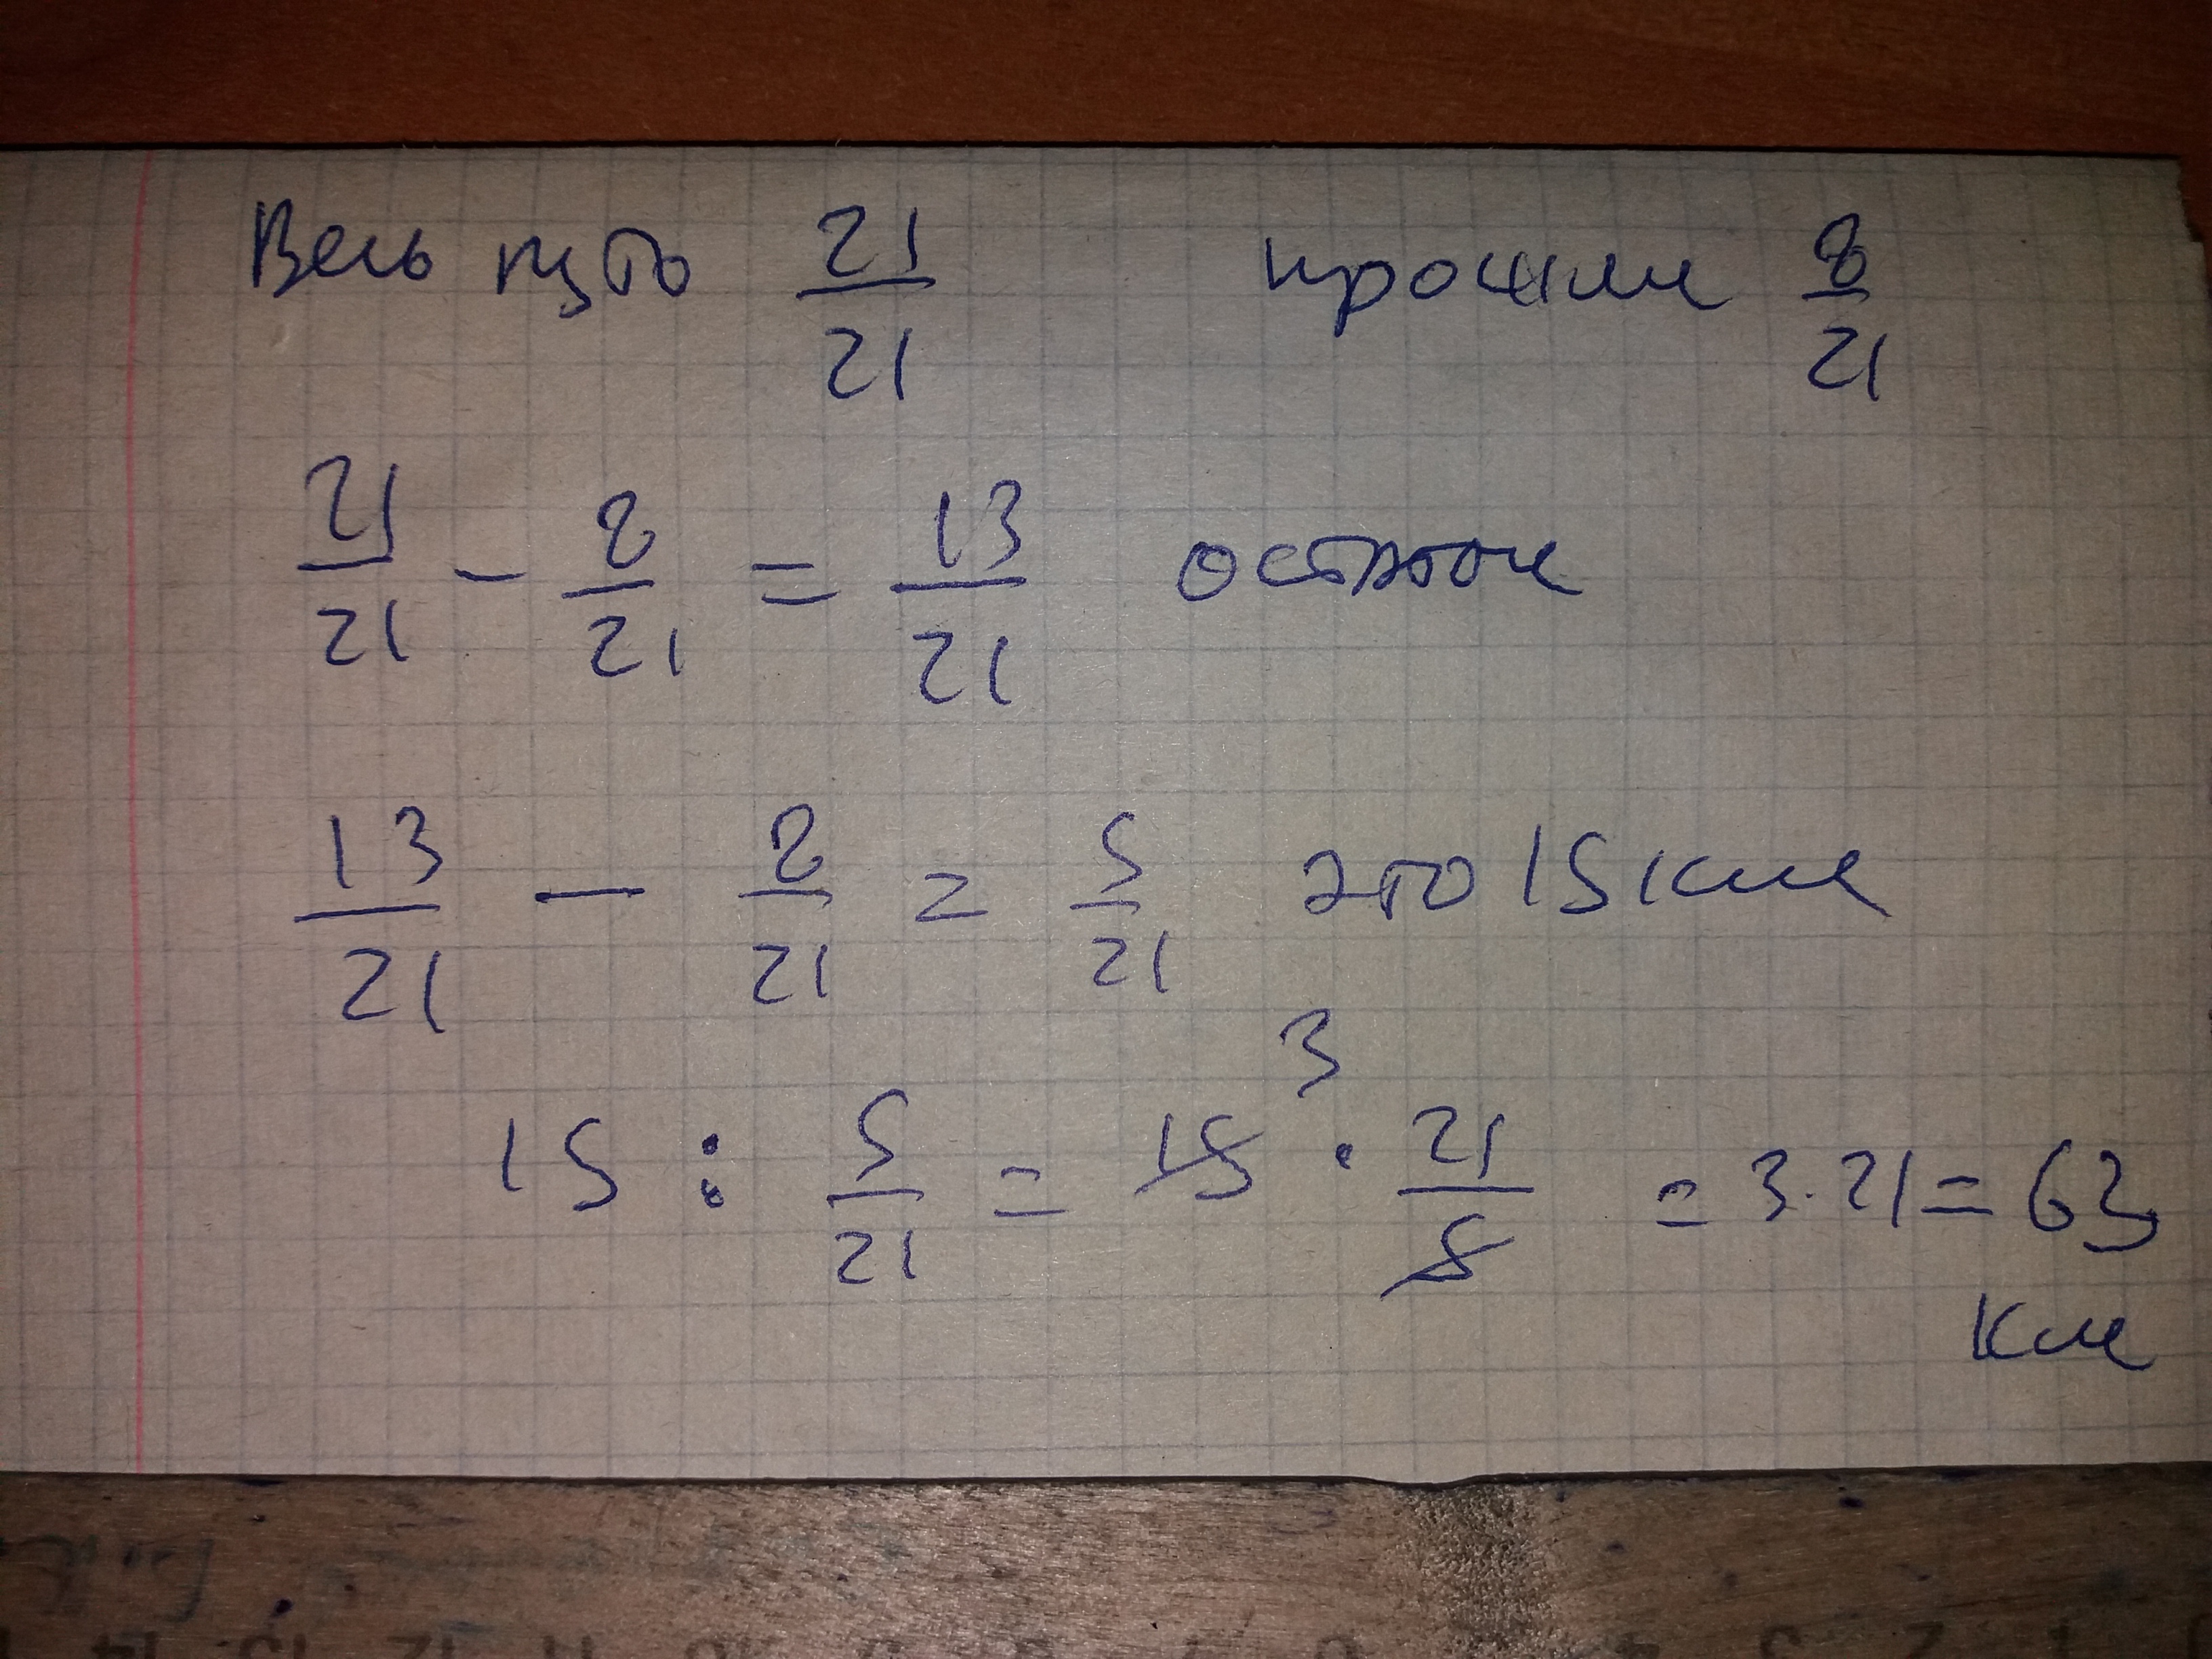 Весь путь 21/21 прошли 8/21
21/21 - 8/21 = 13/21 остаток
13/21 - 8/21 = 5/21 это 15 км
15 : 5/21 = 15 3 · 21/5 = 3·21 = 63
км
1 2 3 4
11 12 13 14